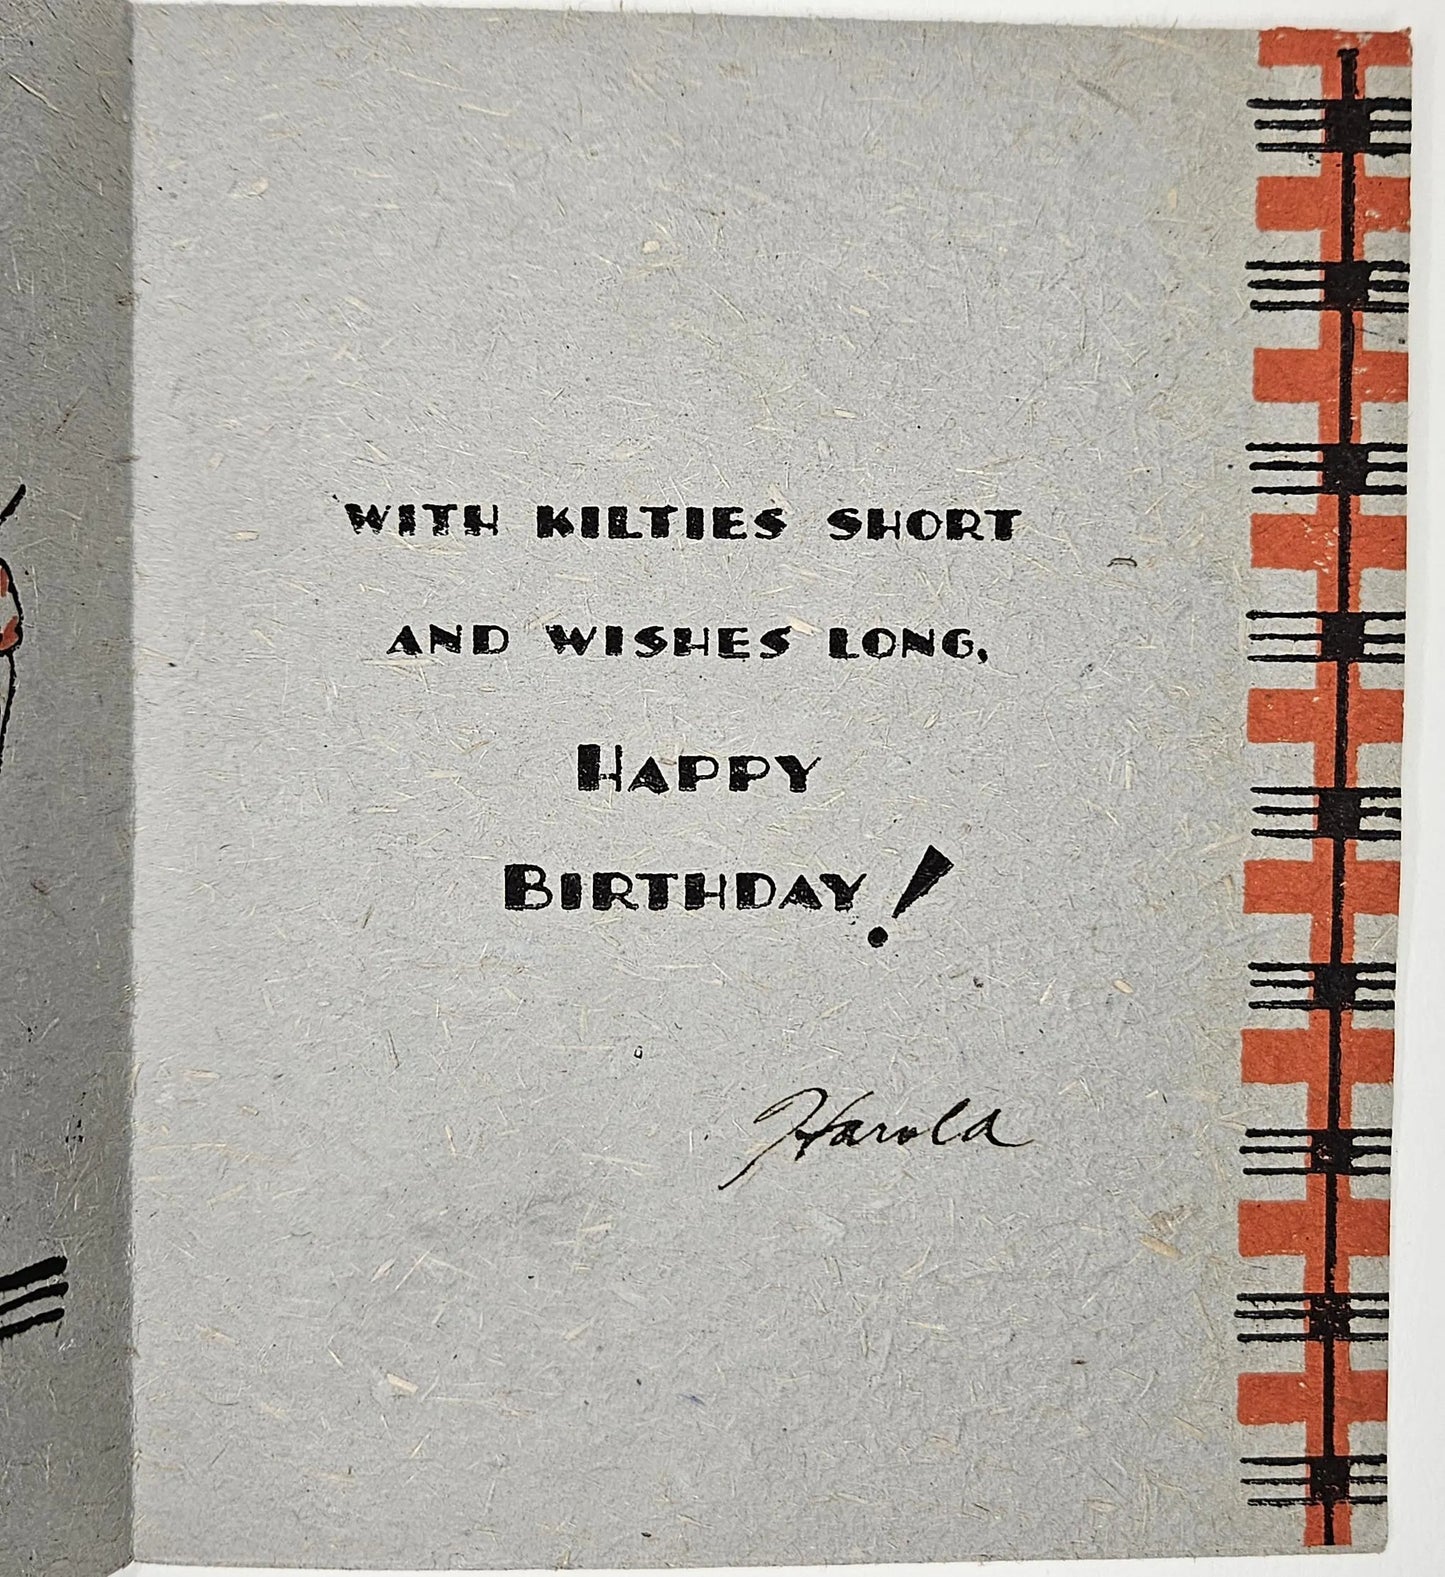 WITH KILTIES SHORT
AND WISHES LONG,
HAPPY
BIRTHDAY!
Harold